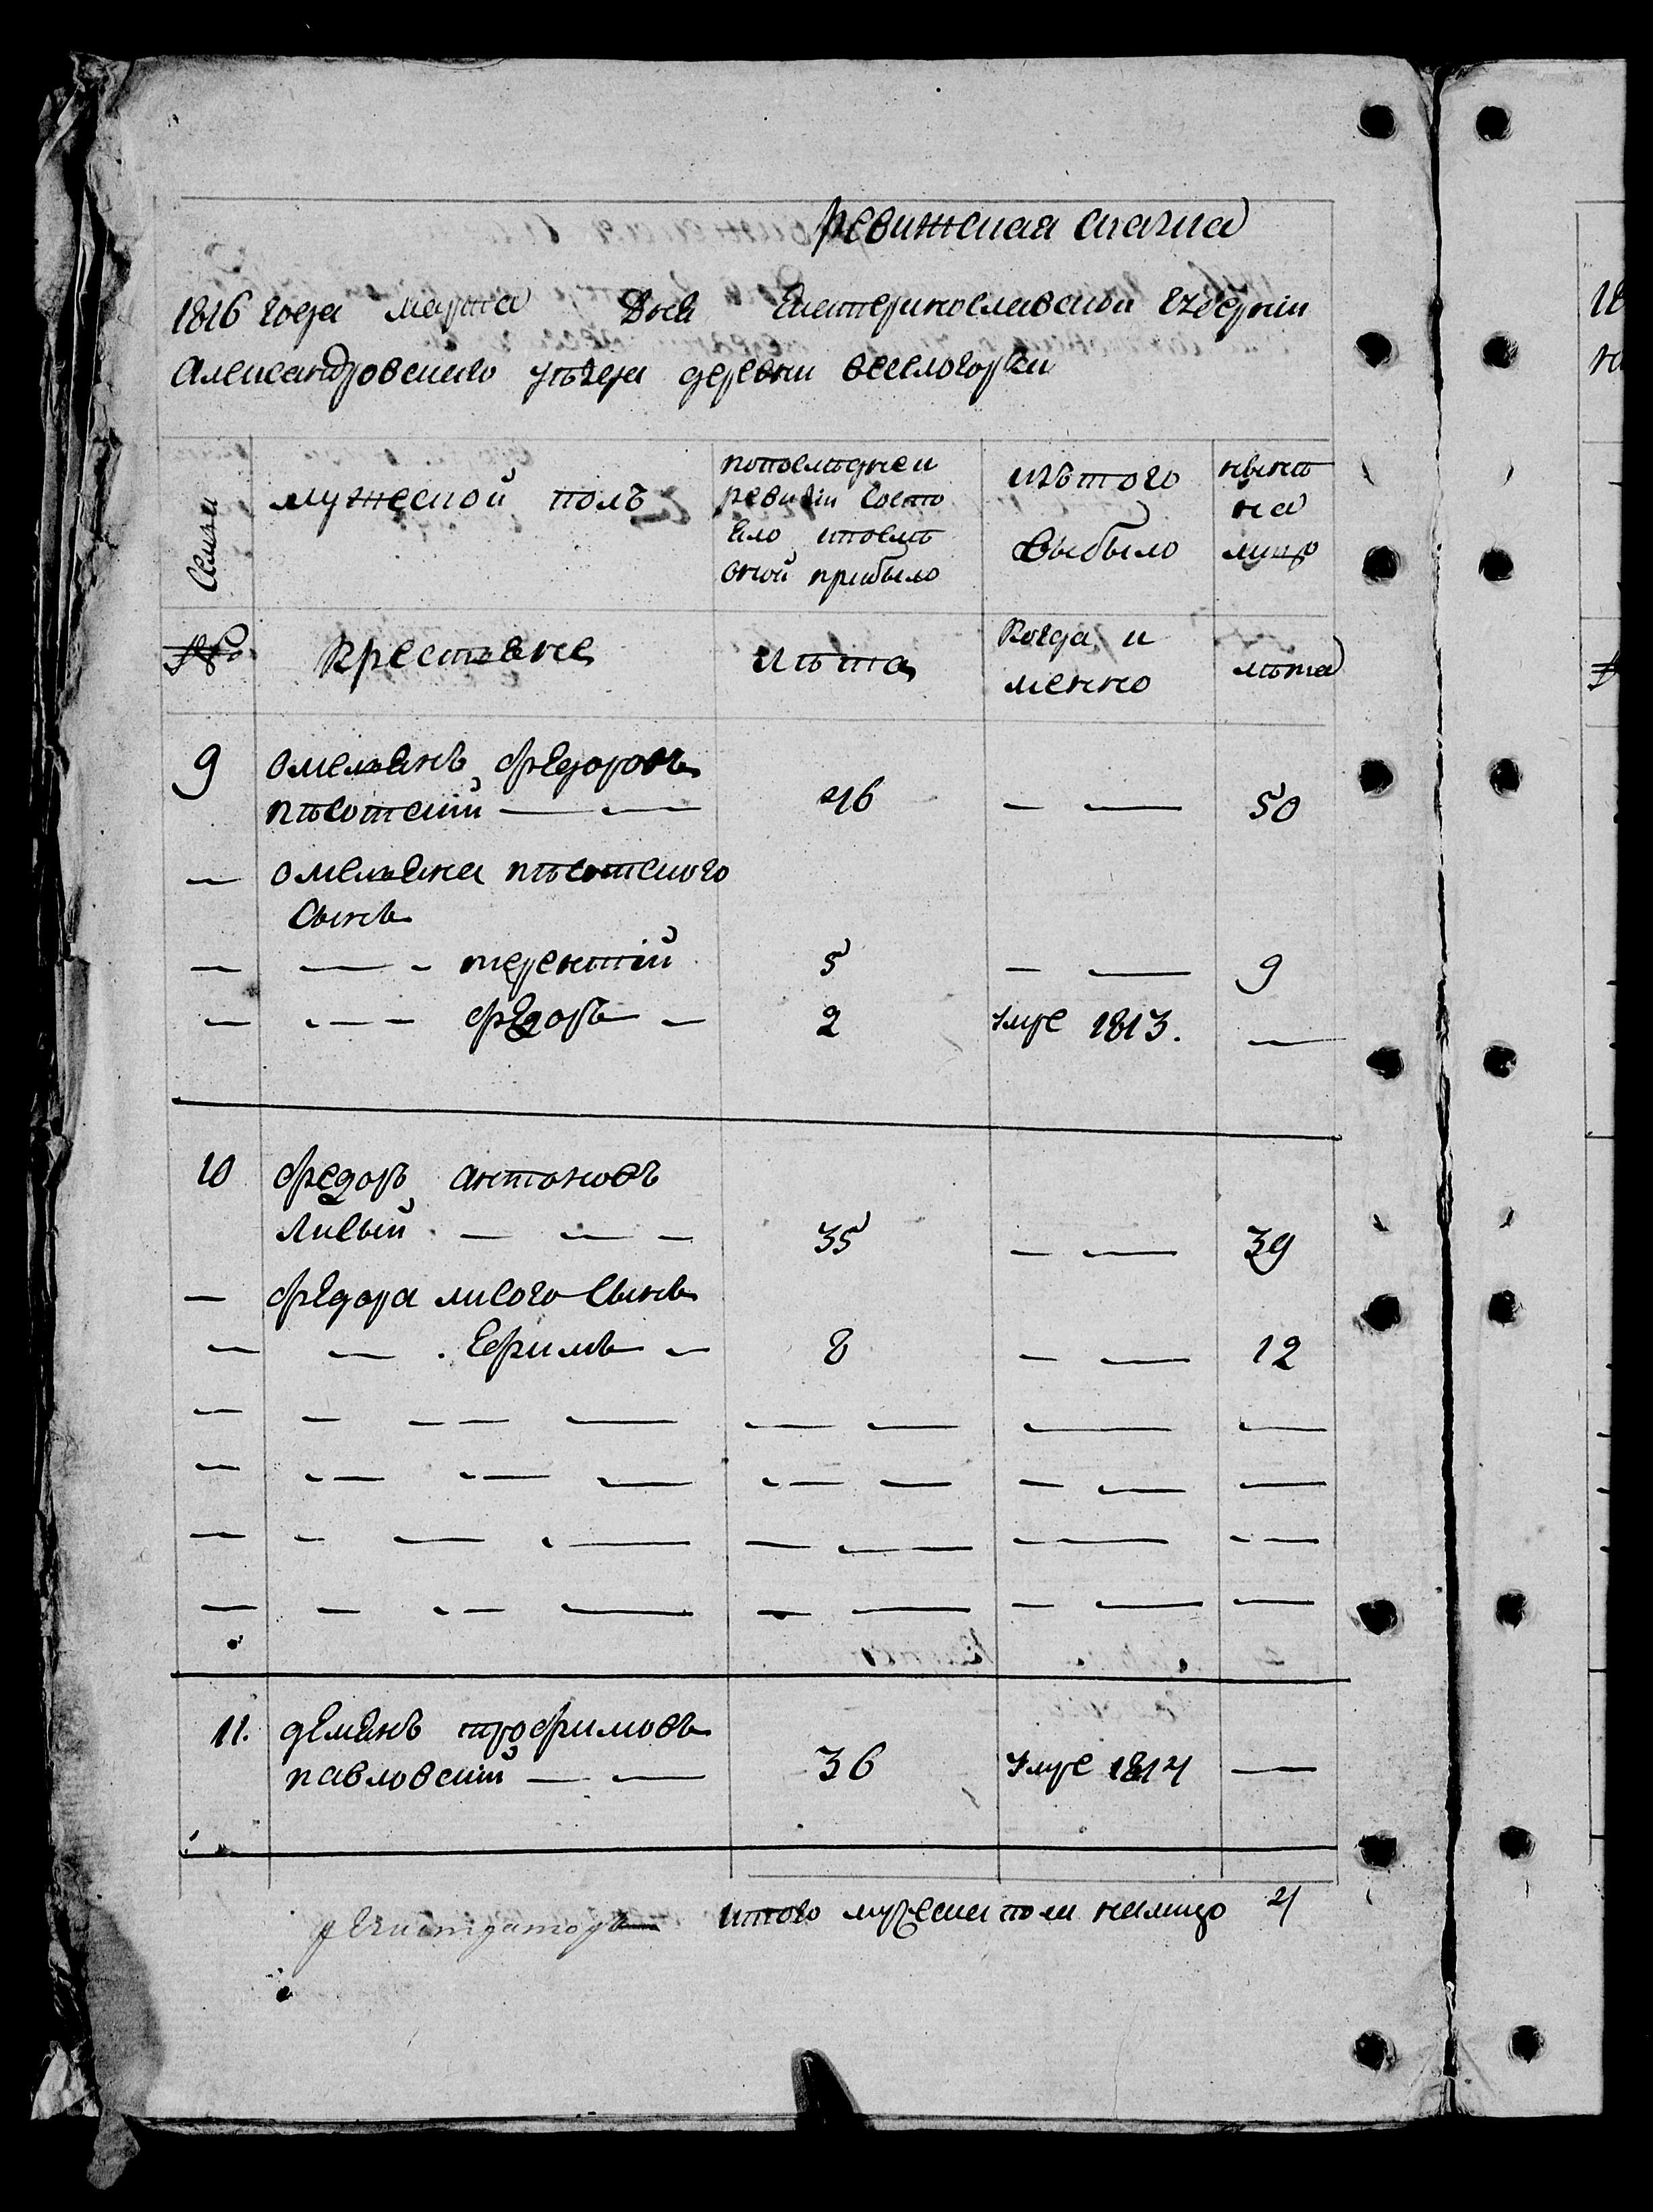 ревижская сказка
1816 года марта Дня Екатеринославской губернiи
Александровскаго уѣзда деревни веселогорки
Семьи
мужеской полъ
попоследнеи
ревизiи состо
яло ипослѣ
оной прибыло
изътого
выбыло
нынѣ
на
лицо
№
крестьяне
лѣта
Когда и
менно
лѣта
9 омельянъ Федоровъ
пѣсотскiй — — 46 — — 50
— омельяна пѣсотского
сынъ
— — - терентiй 5 — — 9
— — — Федоръ — 2 умре 1813. —
10 Федоръ антоновъ
Лисый — — — 35 — — 39
— Федора лисого сынъ
— — . Ефимъ — 8 — — 12
— — — — — — — — —
— — — — — — — — — —
— — — — — — — — —
— — — — — — — — —
11. демянъ трофимовъ
павловскiй — — 36 умре 1814 —
итого мужеска пола налицо 4
регистраторъ
18